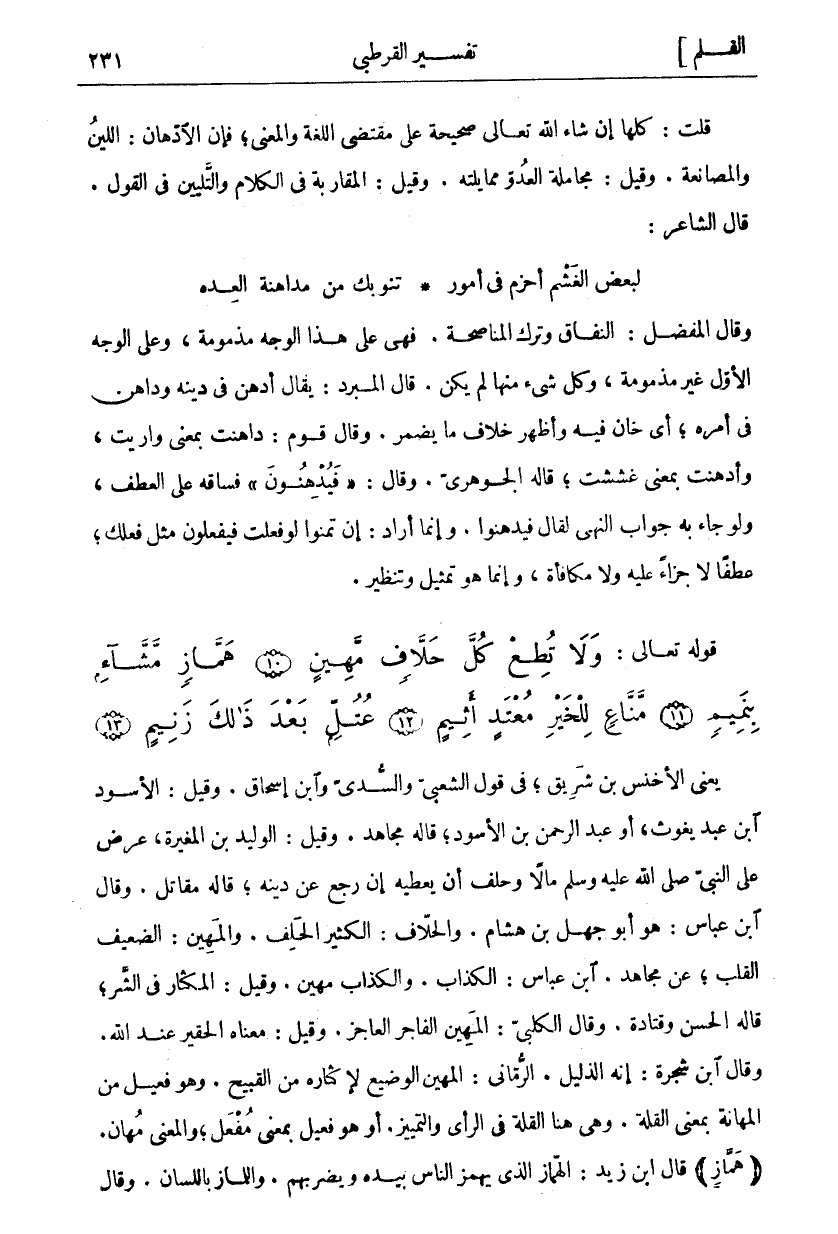 القلم] تفسير القرطبى ٢٣١
قلت : كلها إن شاء الله تعالى صحيحة على مقتضى اللغة والمعنى؛ فإن الآدّهان : اللينُ
والمصانعة . وقيل : مجاملة العدوّ ممايلته . وقيل : المقاربة فى الكلام والتَّليين فى القول .
قال الشاعر :
لبعض الغَشْم أحزم فى أمور * تنوبك من مداهنة العِده
وقال المفضل : النفاق وترك المناصحة . فهى على هذا الوجه مذمومة ، وعلى الوجه
الأوّل غير مذمومة ، وكل شىء منها لم يكن . قال المبرد : يقال أدهن فى دينه وداهن
فى أمره ؛ أى خان فيه وأظهر خلاف ما يضمر . وقال قوم : داهنت بمعنى واريت ،
وأدهنت بمعنى غششت ؛ قاله الجوهرىّ . وقال : « فَيُدْهِنُونَ » فساقه على العطف ،
ولو جاء به جواب النهى لقال فيدهنوا . وإنما أراد : إن تمنوا لو فعلت فيفعلون مثل فعلك؛
عطفًا لا جزاءً عليه ولا مكافأة ، وإنما هو تمثيل وتنظير .
قوله تعالى : وَلَا تُطِعْ كُلَّ حَلَّافٍ مَّهِينٍ ۝١٠ هَمَّازٍ مَّشَّآءٍۭ
بِنَمِيمٍ ۝١١ مَّنَّاعٍ لِّلْخَيْرِ مُعْتَدٍ أَثِيمٍ ۝١٢ عُتُلٍّۭ بَعْدَ ذَٰلِكَ زَنِيمٍ ۝١٣
يعنى الأخنس بن شَرِيق ؛ فى قول الشعبىّ والسُّدىّ وآبن إسحاق . وقيل : الأسود
آبن عبد يغوث، أو عبد الرحمن بن الأسود؛ قاله مجاهد . وقيل : الوليد بن المغيرة، عرض
على النبىّ صلى الله عليه وسلم مالًا وحلف أن يعطيه إن رجع عن دينه ؛ قاله مقاتل . وقال
آبن عباس : هو أبو جهل بن هشام . والحلّاف : الكثير الحَلِف . والمَهِين : الضعيف
القلب ؛ عن مجاهد . آبن عباس : الكذاب . والكذاب مهين . وقيل : المكثار فى الشَّر؛
قاله الحسن وقتادة . وقال الكلبىّ : المَهِين الفاجر العاجز . وقيل : معناه الحقير عند الله .
وقال آبن شجرة : إنه الذليل . الرُّمّانى : المهين الوضيع لإكثاره من القبيح . وهو فعيل من
المهانة بمعنى القلة . وهى هنا القلة فى الرأى والتمييز. أو هو فعيل بمعنى مُفْعَل؛ والمعنى مُهان.
﴿ هَمَّازٍ ﴾ قال ابن زيد : الهمّاز الذى يهمز الناس بيده ويضربهم . واللماز باللسان . وقال